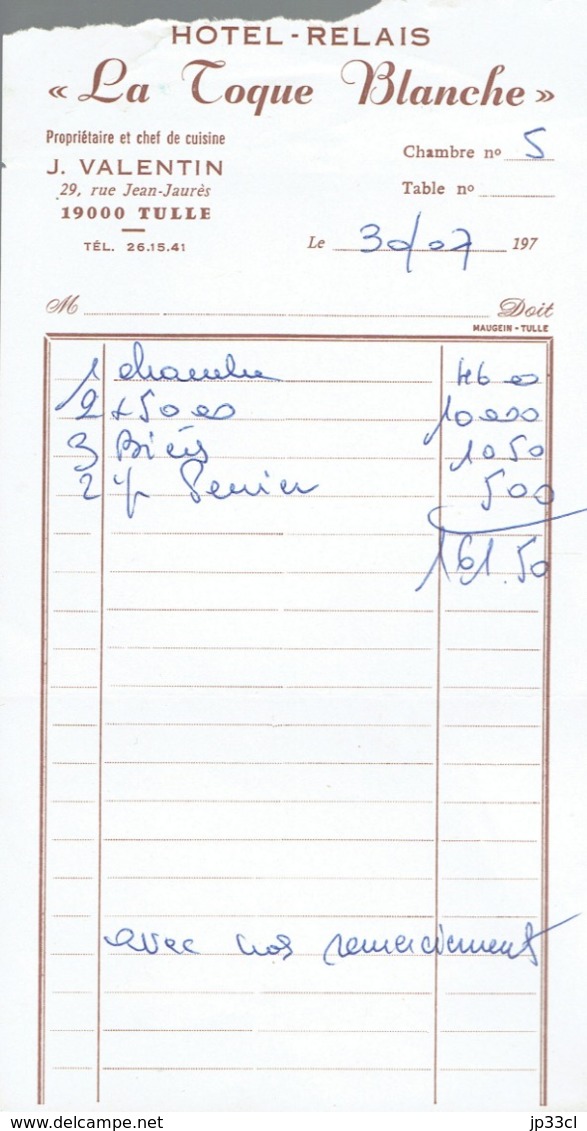 HOTEL-RELAIS
« La Toque Blanche »
Propriétaire et chef de cuisine
J. VALENTIN
29, rue Jean-Jaurès
19000 TULLE
TÉL. 26.15.41
Chambre nº 5
Table nº
Le 30/07 197
M Doit
MAUGEIN - TULLE
1 chambre 46 00
2 x 50 00 100 00
3 Bières 10 50
2 Perrier 5 00
161.50
avec nos remerciement
jp33cl